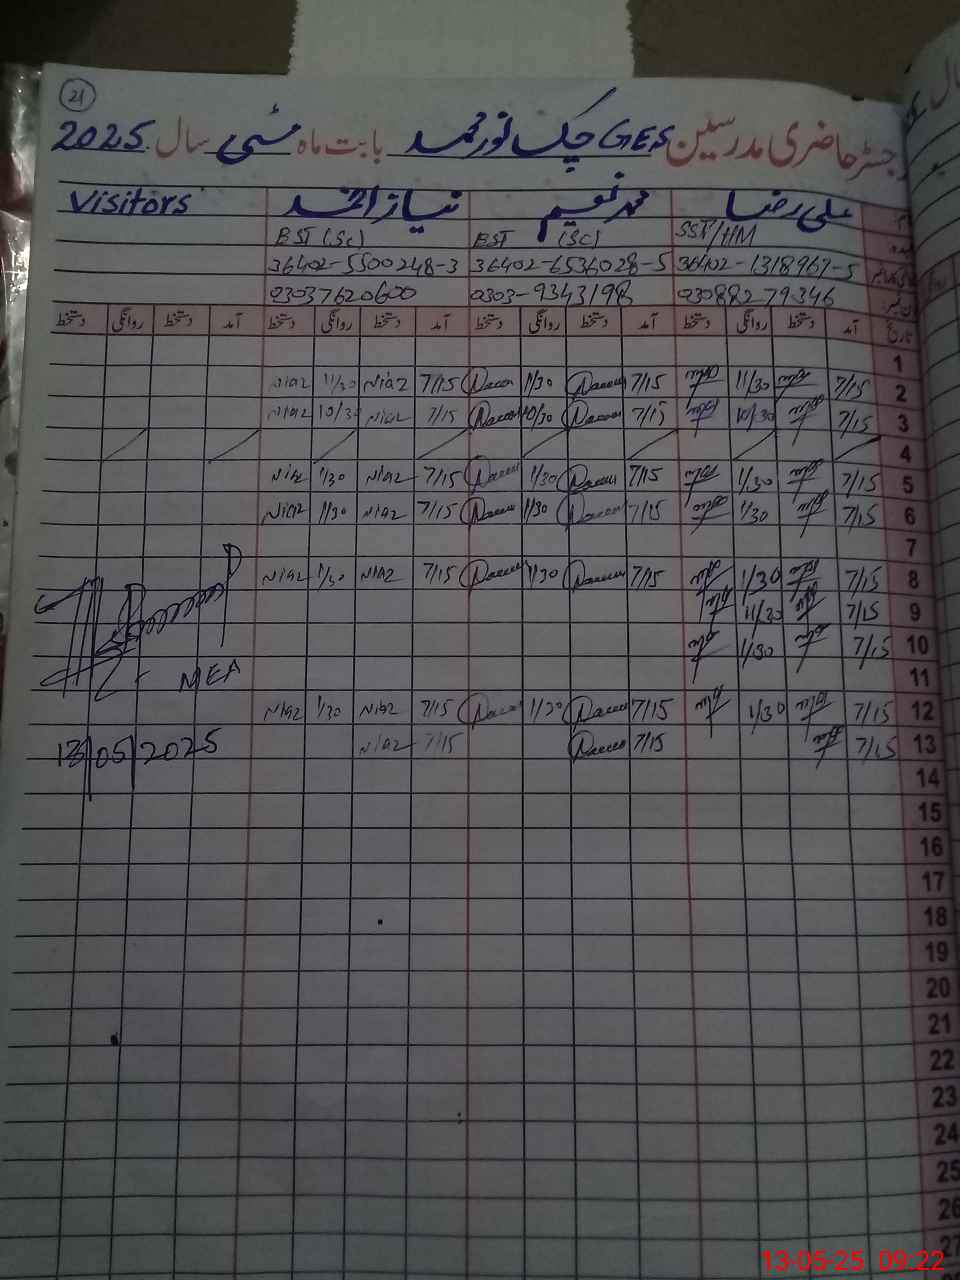 21
رجسٹر حاضری مدرسین GES چک نور محمد بابت ماہ مئی سال 2025
علی رضا محمد نعیم نیاز احمد Visitors
SST/HM EST (Sc) EST (Sc)
36402-1318967-5 36402-6536028-5 36402-5500248-3
03088279346 0303-9343198 03037620600
تاریخ آمد دستخط روانگی دستخط آمد دستخط روانگی دستخط آمد دستخط روانگی دستخط آمد دستخط روانگی دستخط
1
2 7/15 11/30 7/15 11/30 7/15 Niaz 11/30 Niaz
3 7/15 10/30 7/15 10/30 7/15 Niaz 10/30 Niaz
4
5 7/15 1/30 7/15 1/30 7/15 Niaz 1/30 Niaz
6 7/15 1/30 7/15 1/30 7/15 Niaz 1/30 Niaz
7
8 7/15 1/30 7/15 1/30 7/15 Niaz 1/30 Niaz
9 7/15 11/30
10 7/15 1/30
11 MEA
12 7/15 1/30 7/15 1/30 7/15 Niaz 1/30 Niaz
13 7/15 7/15 7/15 Niaz 13/05/2025
14
15
16
17
18
19
20
21
22
23
24
25
26
27
13-05-25 09:22